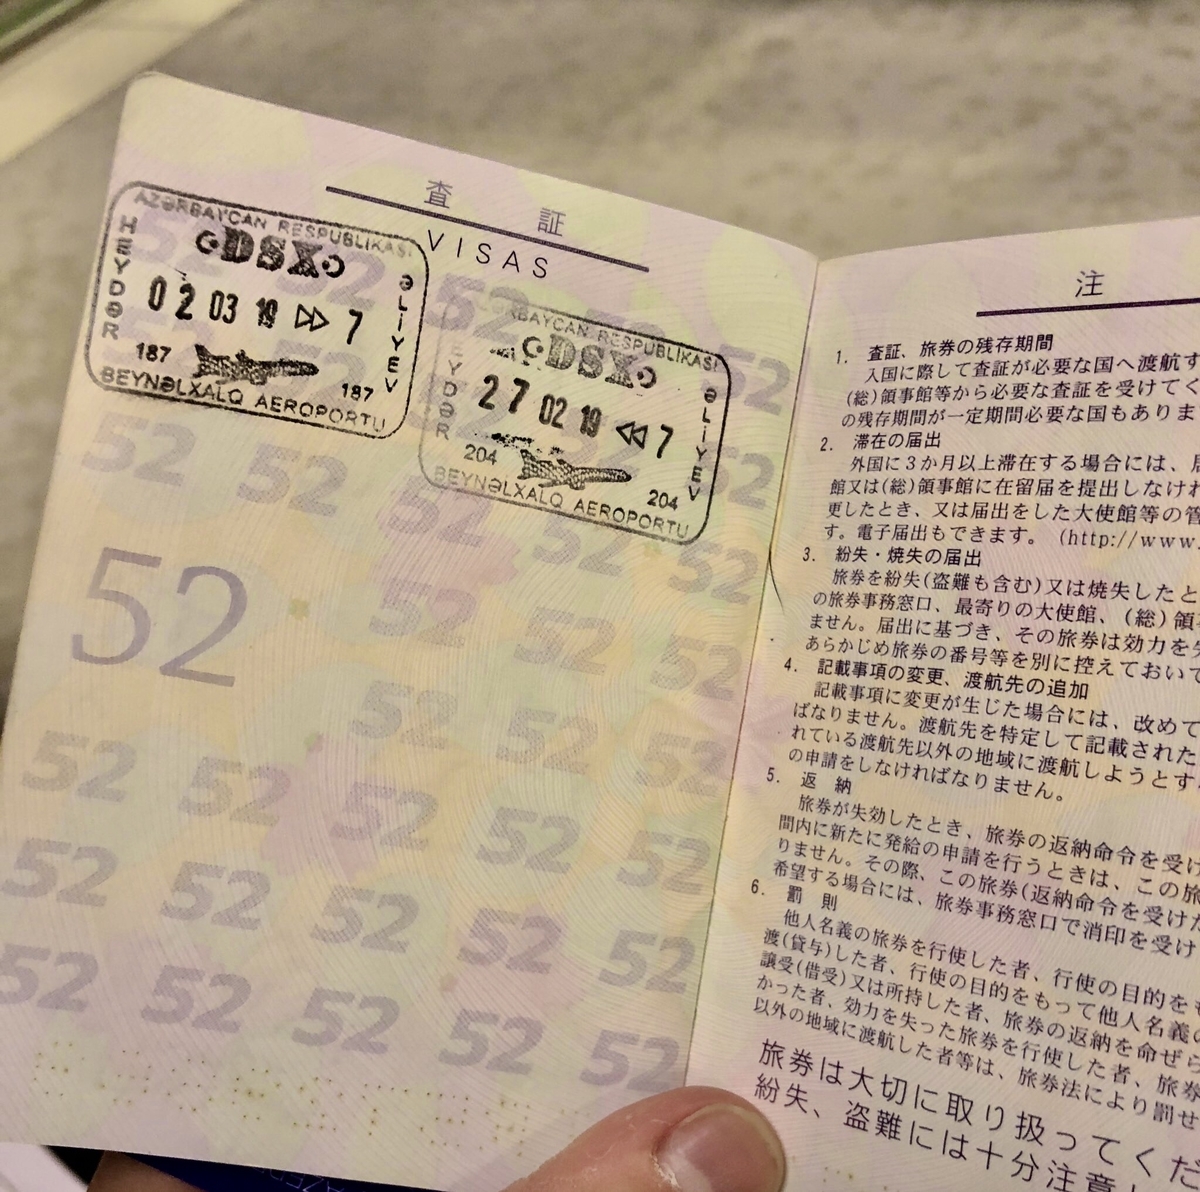 査 証
VISAS
AZƏRBAYCAN RESPUBLIKASI
DSX
HEYDƏR
02 03 19 7
ƏLİYEV
187
187
BEYNƏLXALQ AEROPORTU
RBAYCAN RESPUBLIKASI
DSX
EYDƏR
27 02 19 7
ƏLİYEV
204
204
BEYNƏLXALQ AEROPORTU
52
注
1. 査証、旅券の残存期間
入国に際して査証が必要な国へ渡航す
(総)領事館等から必要な査証を受けてく
の残存期間が一定期間必要な国もありま
2. 滞在の届出
外国に3か月以上滞在する場合には、
館又は(総)領事館に在留届を提出しなけれ
更したとき、又は届出をした大使館等の管
す。電子届出もできます。(http://www.
3. 紛失・焼失の届出
旅券を紛失(盗難も含む)又は焼失したと
の旅券事務窓口、最寄りの大使館、(総)領
ません。届出に基づき、その旅券は効力を失
あらかじめ旅券の番号等を別に控えておいて
4. 記載事項の変更、渡航先の追加
記載事項に変更が生じた場合には、改めて
ばなりません。渡航先を特定して記載された
れている渡航先以外の地域に渡航しようとす
の申請をしなければなりません。
5. 返 納
旅券が失効したとき、旅券の返納命令を受け
間内に新たに発給の申請を行うときは、この旅
りません。その際、この旅券(返納命令を受けた
希望する場合には、旅券事務窓口で消印を受け
6. 罰 則
他人名義の旅券を行使した者、行使の目的をも
渡(貸与)した者、行使の目的をもって他人名義の
譲受(借受)又は所持した者、旅券の返納を命ぜら
かった者、効力を失った旅券を行使した者、旅券
以外の地域に渡航した者等は、旅券法により罰せ
旅券は大切に取り扱ってくだ
紛失、盗難には十分注意し